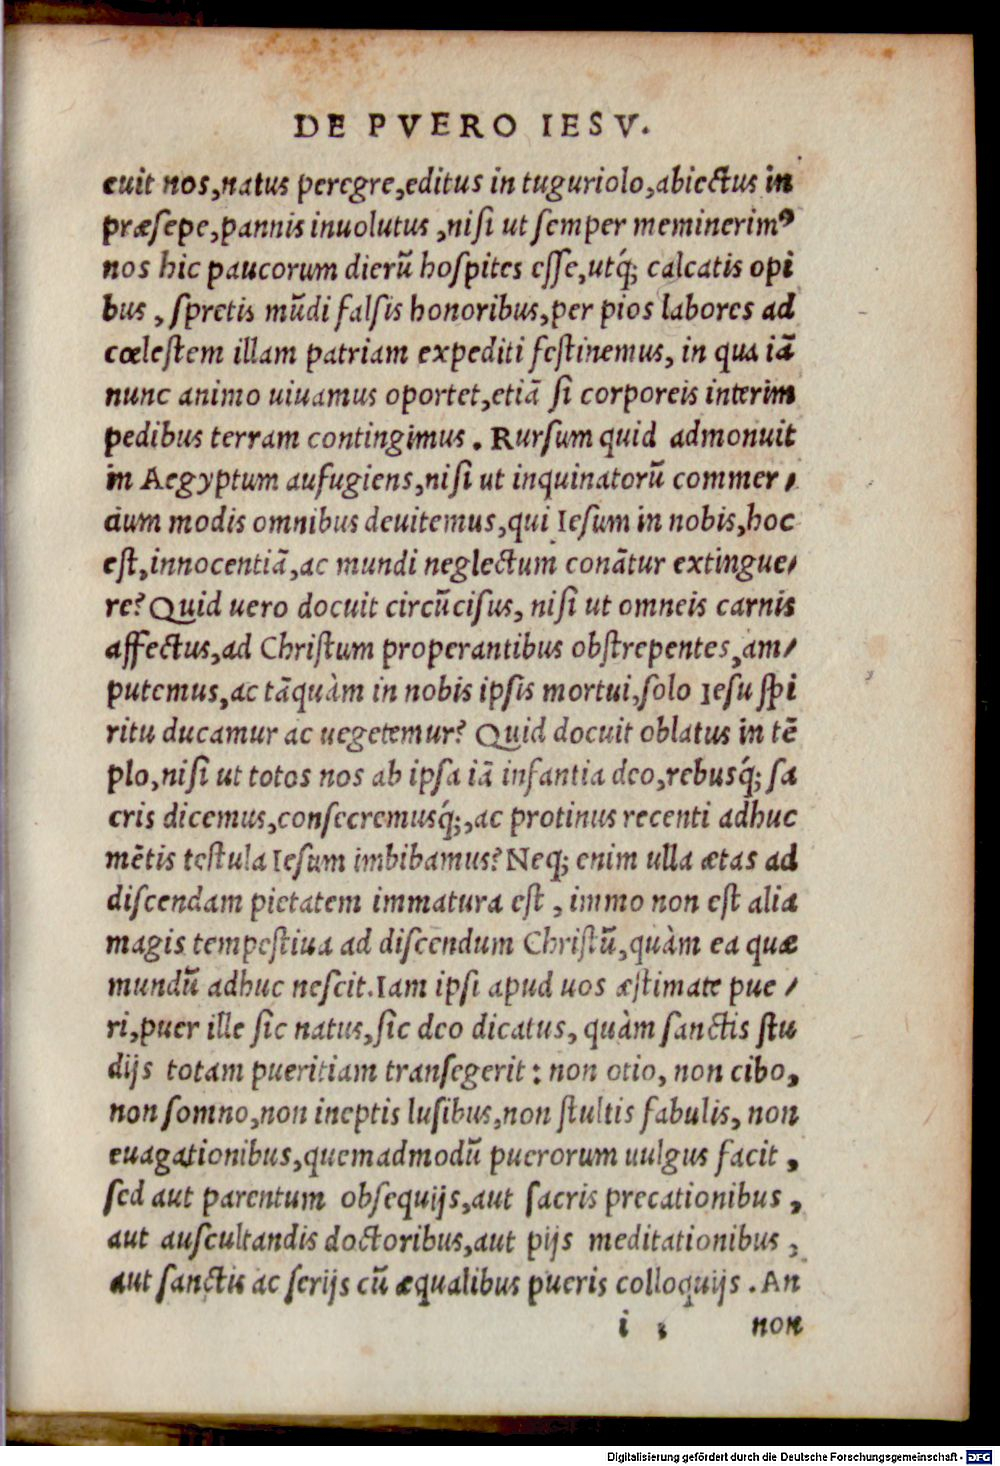 DE PVERO IESV.
cuit nos,natus peregre,editus in tuguriolo,abiectus in
præsepe,pannis inuolutus ,nisi ut semper meminerimꝰ
nos hic paucorum dierũ hospites esse,utq́; calcatis opi
bus , spretis mũdi falsis honoribus,per pios labores ad
cœlestem illam patriam expediti festinemus, in qua iã
nunc animo uiuamus oportet,etiã si corporeis interim
pedibus terram contingimus . Rursum quid admonuit
in Aegyptum aufugiens,nisi ut inquinatorũ commer/
cium modis omnibus deuitemus,qui Iesum in nobis,hoc
est,innocentiã,ac mundi neglectum conãtur extingue/
re? Quid uero docuit circũcisus, nisi ut omneis carnis
affectus,ad Christum properantibus obstrepentes,am/
putemus,ac tãquàm in nobis ipsis mortui,solo Iesu spi
ritu ducamur ac uegetemur? Quid docuit oblatus in tẽ
plo,nisi ut totos nos ab ipsa iã infantia deo,rebusq́; sa
cris dicemus,consecremusq́;,ac protinus recenti adhuc
mẽtis testula Iesum imbibamus? Neq; enim ulla ætas ad
discendam pietatem immatura est , immo non est alia
magis tempestiua ad discendum Christũ,quàm ea quæ
mundũ adhuc nescit.Iam ipsi apud uos æstimate pue/
ri,puer ille sic natus,sic deo dicatus, quàm sanctis stu
dijs totam pueritiam transegerit : non otio, non cibo,
non somno,non ineptis lusibus,non stultis fabulis, non
euagationibus,quemadmodũ puerorum uulgus facit ,
sed aut parentum obsequijs,aut sacris precationibus ,
aut auscultandis doctoribus,aut pijs meditationibus ,
aut sanctis ac serijs cũ æqualibus pueris colloquijs . An
i ; non
Digitalisierung gefördert durch die Deutsche Forschungsgemeinschaft - DFG